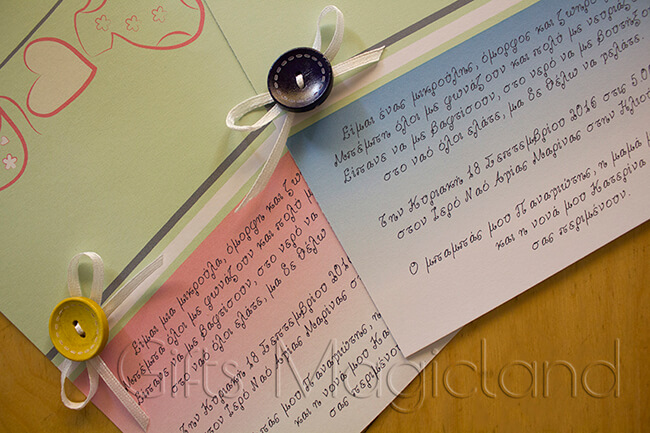 Είμαι ένας μικρούλης, όμορφος και ζωηρ
Μπέμπη όλοι με φωνάζουν και πολύ με
Είπανε να με βαφτίσουν, στο νερό να με βουτήξ
στο ναό όλοι ελάτε, μα δε θέλω να γελάτε.
Την Κυριακή 18 Σεπτεμβρίου 2016 στις 5.0
στον Ιερό Ναό Αγίας Μαρίνας στην Ηλιού
Ο μπαμπάς μου Παναγιώτης, η μαμά μ
και η νονά μου Κατερίνα
σας περιμένουν.
Είμαι μια μικρούλα, όμορφη και ζω
Μπέμπα όλοι με φωνάζουν και πολύ μ
Είπανε να με βαφτίσουν, στο νερό να
στο ναό όλοι ελάτε, μα δε θέλω
Την Κυριακή 18 Σεπτεμβρίου 2016
στον Ιερό Ναό Αγίας Μαρίνας σ
πάς μου Παναγιώτης, η
και η νονά μου Κα
σας περιμ
Gifts Magicland